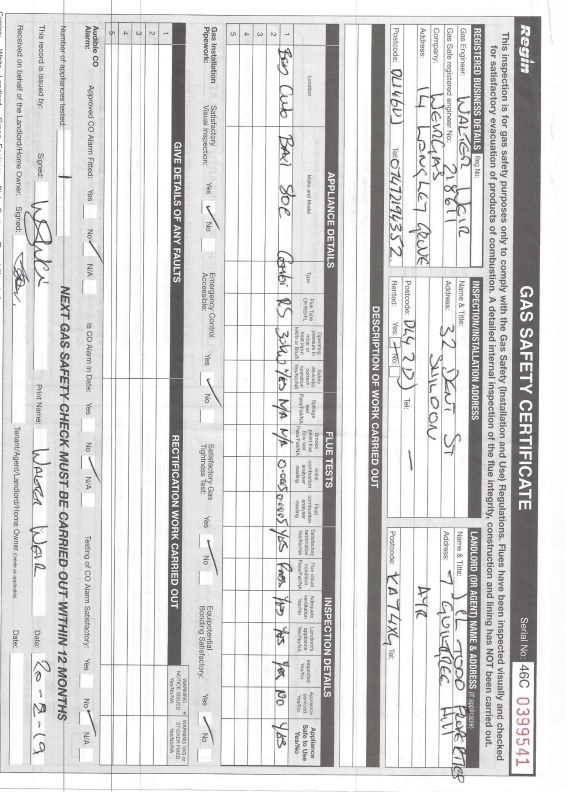 Regin
GAS SAFETY CERTIFICATE
Serial No: 46C 0399541
This inspection is for gas safety purposes only to comply with the Gas Safety (Installation and Use) Regulations. Flues have been inspected visually and checked
for satisfactory evacuation of products of combustion. A detailed internal inspection of the flue integrity, construction and lining has NOT been carried out.
REGISTERED BUSINESS DETAILS Reg No:
Gas Engineer: WALKER WEIR
Gas Safe registered engineer No: 218611
Company: WEIRGAS
Address: 14 LANGLEY GROVE
Postcode: DL14 6UJ Tel: 07472194352
INSPECTION/INSTALLATION ADDRESS
Name & Title:
Address: 32 DENT ST
SHILDON
Postcode: DL4 2DJ Tel: —
Rented: Yes No
LANDLORD (OR AGENT) NAME & ADDRESS (if applicable)
Name & Title: PROPERTIES
Address: 7 HILL
AYR
Postcode: KA7 4XG Tel:
DESCRIPTION OF WORK CARRIED OUT
APPLIANCE DETAILS
FLUE TESTS
INSPECTION DETAILS
Location
Make and Model
Type
Flue Type OF/RS/FL
Operating pressure in mbar or heat input kW/h or Btu/h
Safety device(s) correct operation Yes/No/NA
Spillage test Pass/Fail/NA
Smoke pellet flue flow test Pass/Fail/NA
Initial combustion analyser reading
Final combustion analyser reading
Satisfactory termination Yes/No/NA
Flue visual condition Pass/Fail/NA
Adequate ventilation Yes/No
Landlord's appliance Yes/No/NA
Inspected Yes/No
Appliance serviced Yes/No
Appliance Safe to Use Yes/No
1 Baxi 30e Combi RS 30kW Yes N/A N/A 0.0005 0.0005 Yes Pass Yes Yes Yes No Yes
2
3
4
5
Gas Installation Pipework:
Satisfactory Visual Inspection: Yes No
Emergency Control Accessible: Yes No
Satisfactory Gas Tightness Test: Yes No
Equipotential Bonding Satisfactory: Yes No
GIVE DETAILS OF ANY FAULTS
RECTIFICATION WORK CARRIED OUT
WARNING NOTICE ISSUED Yes/No/NA
WARNING TAG or STICKER FIXED Yes/No/NA
1
2
3
4
5
Audible CO Alarm:
Approved CO Alarm Fitted: Yes No N/A
Is CO Alarm in Date: Yes No N/A
Testing of CO Alarm Satisfactory: Yes No N/A
Number of appliances tested: 1
NEXT GAS SAFETY CHECK MUST BE CARRIED OUT WITHIN 12 MONTHS
This record is issued by: Signed: Print Name: WALKER WEIR Date: 20-2-19
Received on behalf of the Landlord/Home Owner: Signed: Tenant/Agent/Landlord/Home Owner (Delete as applicable) Date: